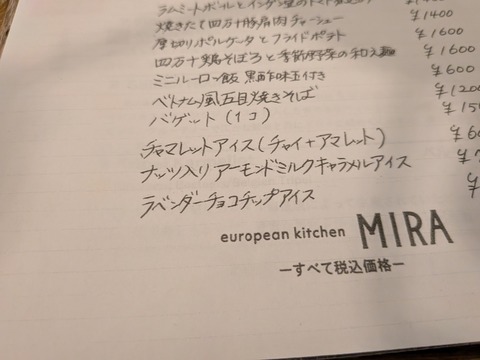 ラムミートボールとインゲン豆のトマト
焼きたて四万十豚肩肉チャーシュー ¥1400
厚切りポルケッタとフライドポテト ¥1600
四万十鶏そぼろと季節野菜の和え麺 ¥1600
ミニルーロー飯 黒酢味玉付き ¥600
ベトナム風五目焼きそば ¥1200
バゲット(1コ)
チャマレットアイス(チャイ+アマレット)
ナッツ入りアーモンドミルクキャラメルアイス
ラベンダーチョコチップアイス
european kitchen MIRA
ーすべて税込価格ー